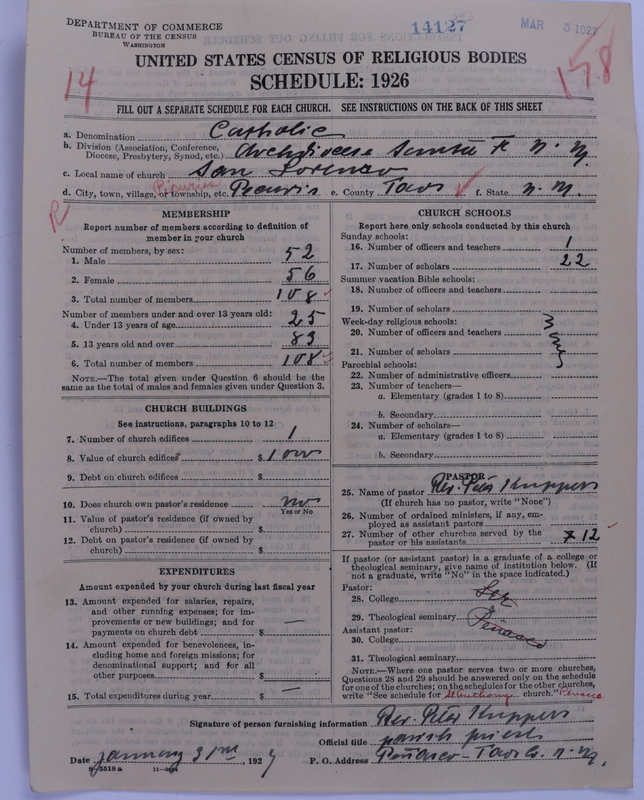 DEPARTMENT OF COMMERCE
BUREAU OF THE CENSUS
WASHINGTON
14127
MAR 5 1927
UNITED STATES CENSUS OF RELIGIOUS BODIES
SCHEDULE: 1926
14
178
FILL OUT A SEPARATE SCHEDULE FOR EACH CHURCH. SEE INSTRUCTIONS ON THE BACK OF THIS SHEET
a. Denomination Catholic
b. Division (Association, Conference, Diocese, Presbytery, Synod, etc.) Archdiocese Santa Fe N. M.
c. Local name of church San Lorenzo
d. City, town, village, or township, etc. Picuris e. County Taos f. State N. M.
R
MEMBERSHIP
Report number of members according to definition of
member in your church
Number of members, by sex:
1. Male 52
2. Female 56
3. Total number of members 108
Number of members under and over 13 years old:
4. Under 13 years of age 25
5. 13 years old and over 83
6. Total number of members 108
NOTE.—The total given under Question 6 should be the
same as the total of males and females given under Question 3.
CHURCH BUILDINGS
See instructions, paragraphs 10 to 12
7. Number of church edifices 1
8. Value of church edifices $
9. Debt on church edifices $
10. Does church own pastor's residence no
Yes or No
11. Value of pastor's residence (if owned by
church) $
12. Debt on pastor's residence (if owned by
church) $
EXPENDITURES
Amount expended by your church during last fiscal year
13. Amount expended for salaries, repairs,
and other running expenses; for im-
provements or new buildings; and for
payments on church debt $ —
14. Amount expended for benevolences, in-
cluding home and foreign missions; for
denominational support; and for all
other purposes $
15. Total expenditures during year $ —
CHURCH SCHOOLS
Report here only schools conducted by this church
Sunday schools:
16. Number of officers and teachers 1
17. Number of scholars 22
Summer vacation Bible schools:
18. Number of officers and teachers
19. Number of scholars
Week-day religious schools:
20. Number of officers and teachers
21. Number of scholars
Parochial schools:
22. Number of administrative officers
23. Number of teachers—
a. Elementary (grades 1 to 8)
b. Secondary
24. Number of scholars—
a. Elementary (grades 1 to 8)
b. Secondary
PASTOR
25. Name of pastor Rev. Peter Kuppers
(If church has no pastor, write "None")
26. Number of ordained ministers, if any, em-
ployed as assistant pastors
27. Number of other churches served by the
pastor or his assistants 12
If pastor (or assistant pastor) is a graduate of a college or
theological seminary, give name of institution below. (If
not a graduate, write "No" in the space indicated.)
Pastor:
28. College See
29. Theological seminary Penasco
Assistant pastor:
30. College
31. Theological seminary
NOTE.—Where one pastor serves two or more churches,
Questions 28 and 29 should be answered only on the schedule
for one of the churches; on the schedules for the other churches,
write "See schedule for St. Anthony church." Penasco
Signature of person furnishing information Rev. Peter Kuppers
Official title parish priest
Date January 31, 1927 P. O. Address Peñasco - Taos Co. N. M.
11—